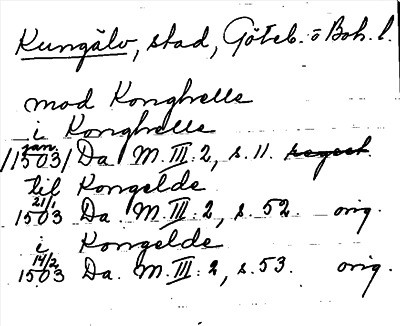 Kungälv, stad, Göteb. o Boh. l.
mod Konghelle
i Konghelle
jan.
/1503/ Da. M. III: 2, s. 11. regest.
til Kongelde
21/1
1503 Da. M. III: 2, s. 52. orig.
i Kongelde
14/2
1503 Da. M. III: 2, s. 53. orig.